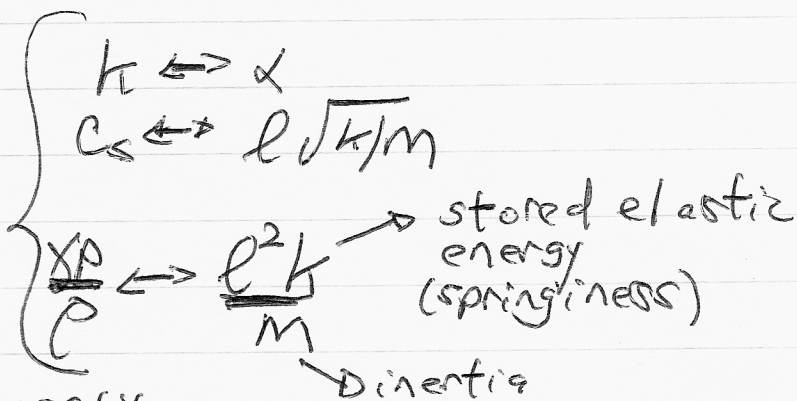 k ↔ α
C_s ↔ ℓ√(k/m)
γP/ρ ↔ ℓ²k/m → stored elastic
energy
(springiness)
→ inertia